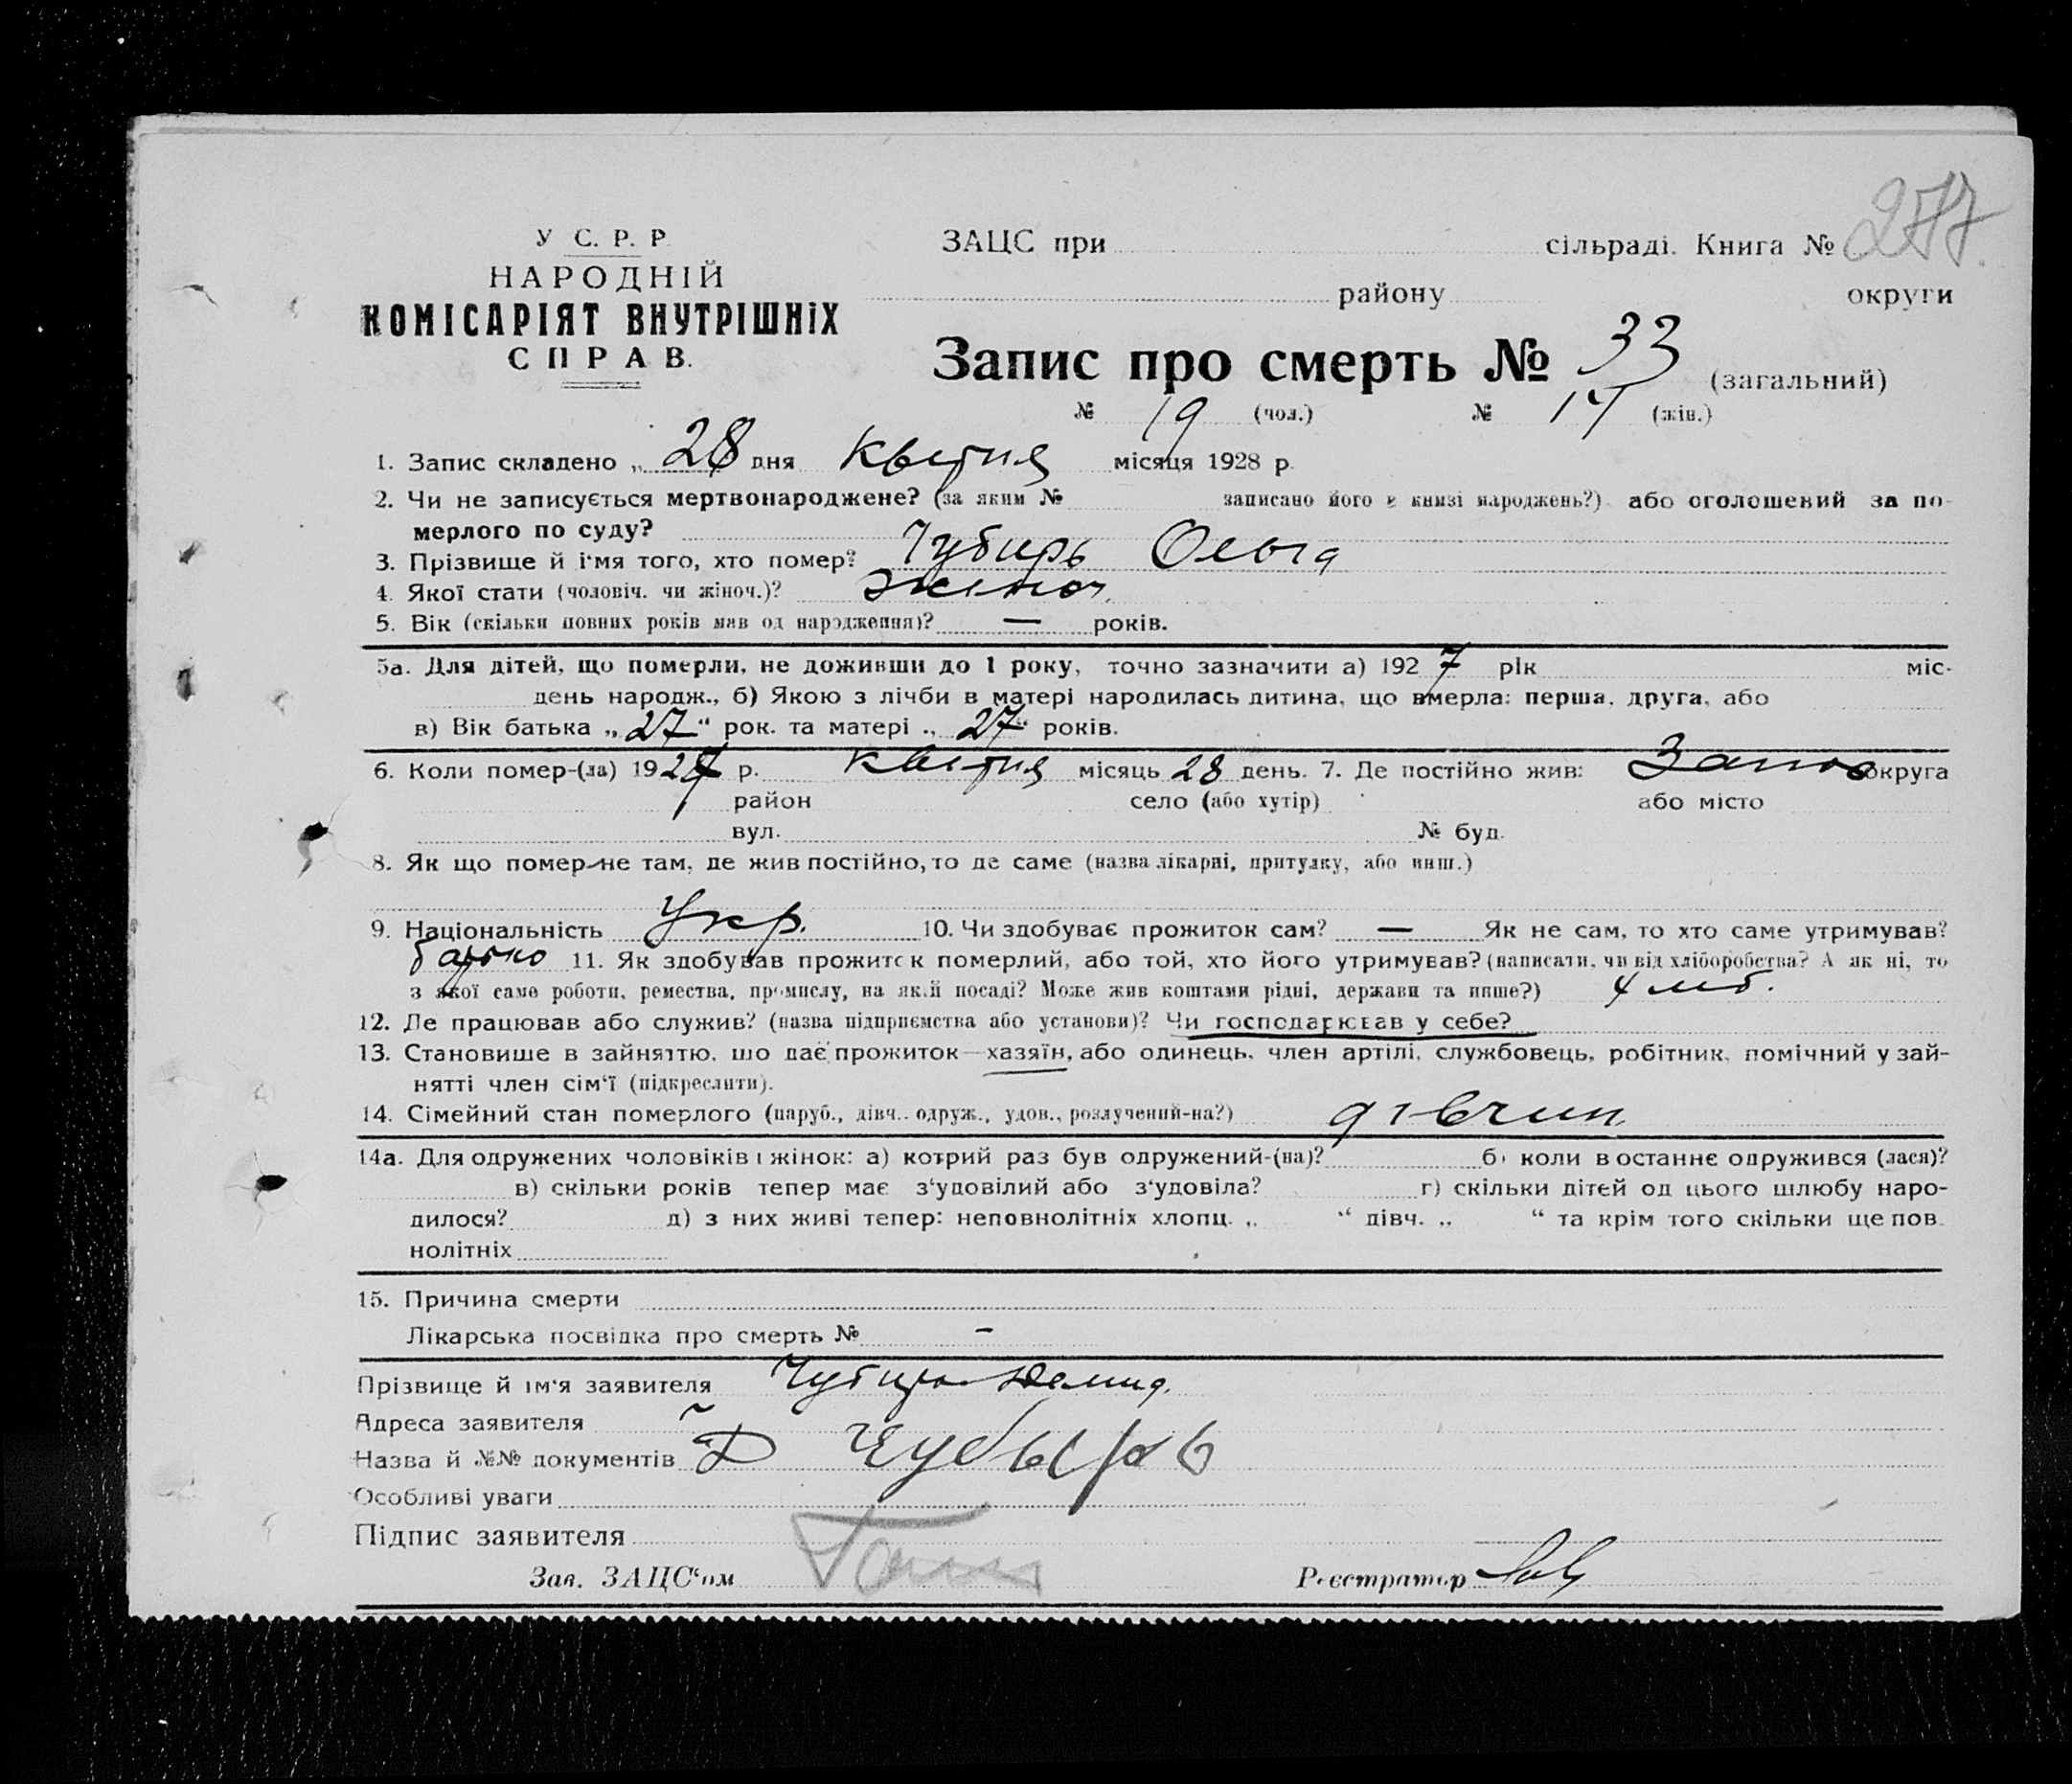 277
У С. Р. Р.
НАРОДНІЙ
КОМІСАРІЯТ ВНУТРІШНІХ
СПРАВ.
ЗАЦС при сільраді. Книга №
району округи
Запис про смерть № 33 (загальний)
№ 19 (чол.) № 14 (жін.)
1. Запис складено „ 28 дня квітня місяця 1928 р.
2. Чи не записується мертвонароджене? (за яким № записано його в книзі народжень?) або оголошений за по-
мерлого по суду?
3. Прізвище й і'мя того, хто помер? Чубирь Ольга
4. Якої стати (чоловіч. чи жіноч.)? жіноч.
5. Вік (скільки повних років мав од народження)? — років.
5а. Для дітей, що померли, не доживши до 1 року, точно зазначити а) 1927 рік міс.
день народж., б) Якою з лічби в матері народилась дитина, що вмерла: перша, друга, або
в) Вік батька „ 27 “ рок. та матері „ 27 “ років.
6. Коли помер-(ла) 192 р. квітня місяць 28 день. 7. Де постійно жив: Запоо округа
район село (або хутір) або місто
вул. № буд.
8. Як що помер не там, де жив постійно, то де саме (назва лікарні, притулку, або инш.)
9. Національність Укр. 10. Чи здобуває прожиток сам? — Як не сам, то хто саме утримував?
батько 11. Як здобував прожиток померлий, або той, хто його утримував? (написати, чи від хліборобства? А як ні, то
з якої саме роботи, ремества, промислу, на якій посаді? Може жив коштами рідні, держави та инше?) хліб.
12. Де працював або служив? (назва підприємства або установи)? Чи господарював у себе?
13. Становище в зайняттю, що дає прожиток—хазяїн, або одинець, член артілі, службовець, робітник, помічний у зай-
нятті член сім'ї (підкреслити).
14. Сімейний стан померлого (паруб., дівч., одруж., удов., розлучений-на?) дівчин.
14а. Для одружених чоловіків і жінок: а) котрий раз був одружений-(на)? б) коли востаннє одружився (лася)?
в) скільки років тепер має з'удовілий або з'удовіла? г) скільки дітей од цього шлюбу наро-
дилося? д) з них живі тепер: неповнолітніх хлопц. „ “ дівч. „ “ та крім того скільки ще пов-
нолітніх
15. Причина смерти
Лікарська посвідка про смерть № -
Прізвище й ім'я заявителя Чубирь Демид.
Адреса заявителя
Назва й №№ документів Д Чубырь
Особливі уваги
Підпис заявителя
Зав. ЗАЦС'ом
Реєстратор